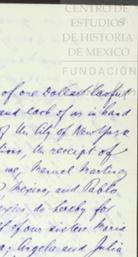 CENTRO DE
ESTUDIOS
DE HISTORIA
DE MEXICO
FUNDACIÓN
of one Dollar lawful
and each of us in hand
of the City of New York
the receipt of
we, Manuel Martinez
Mexico, and Pablo
do hereby for
of our sisters Maria
Angela and Julia